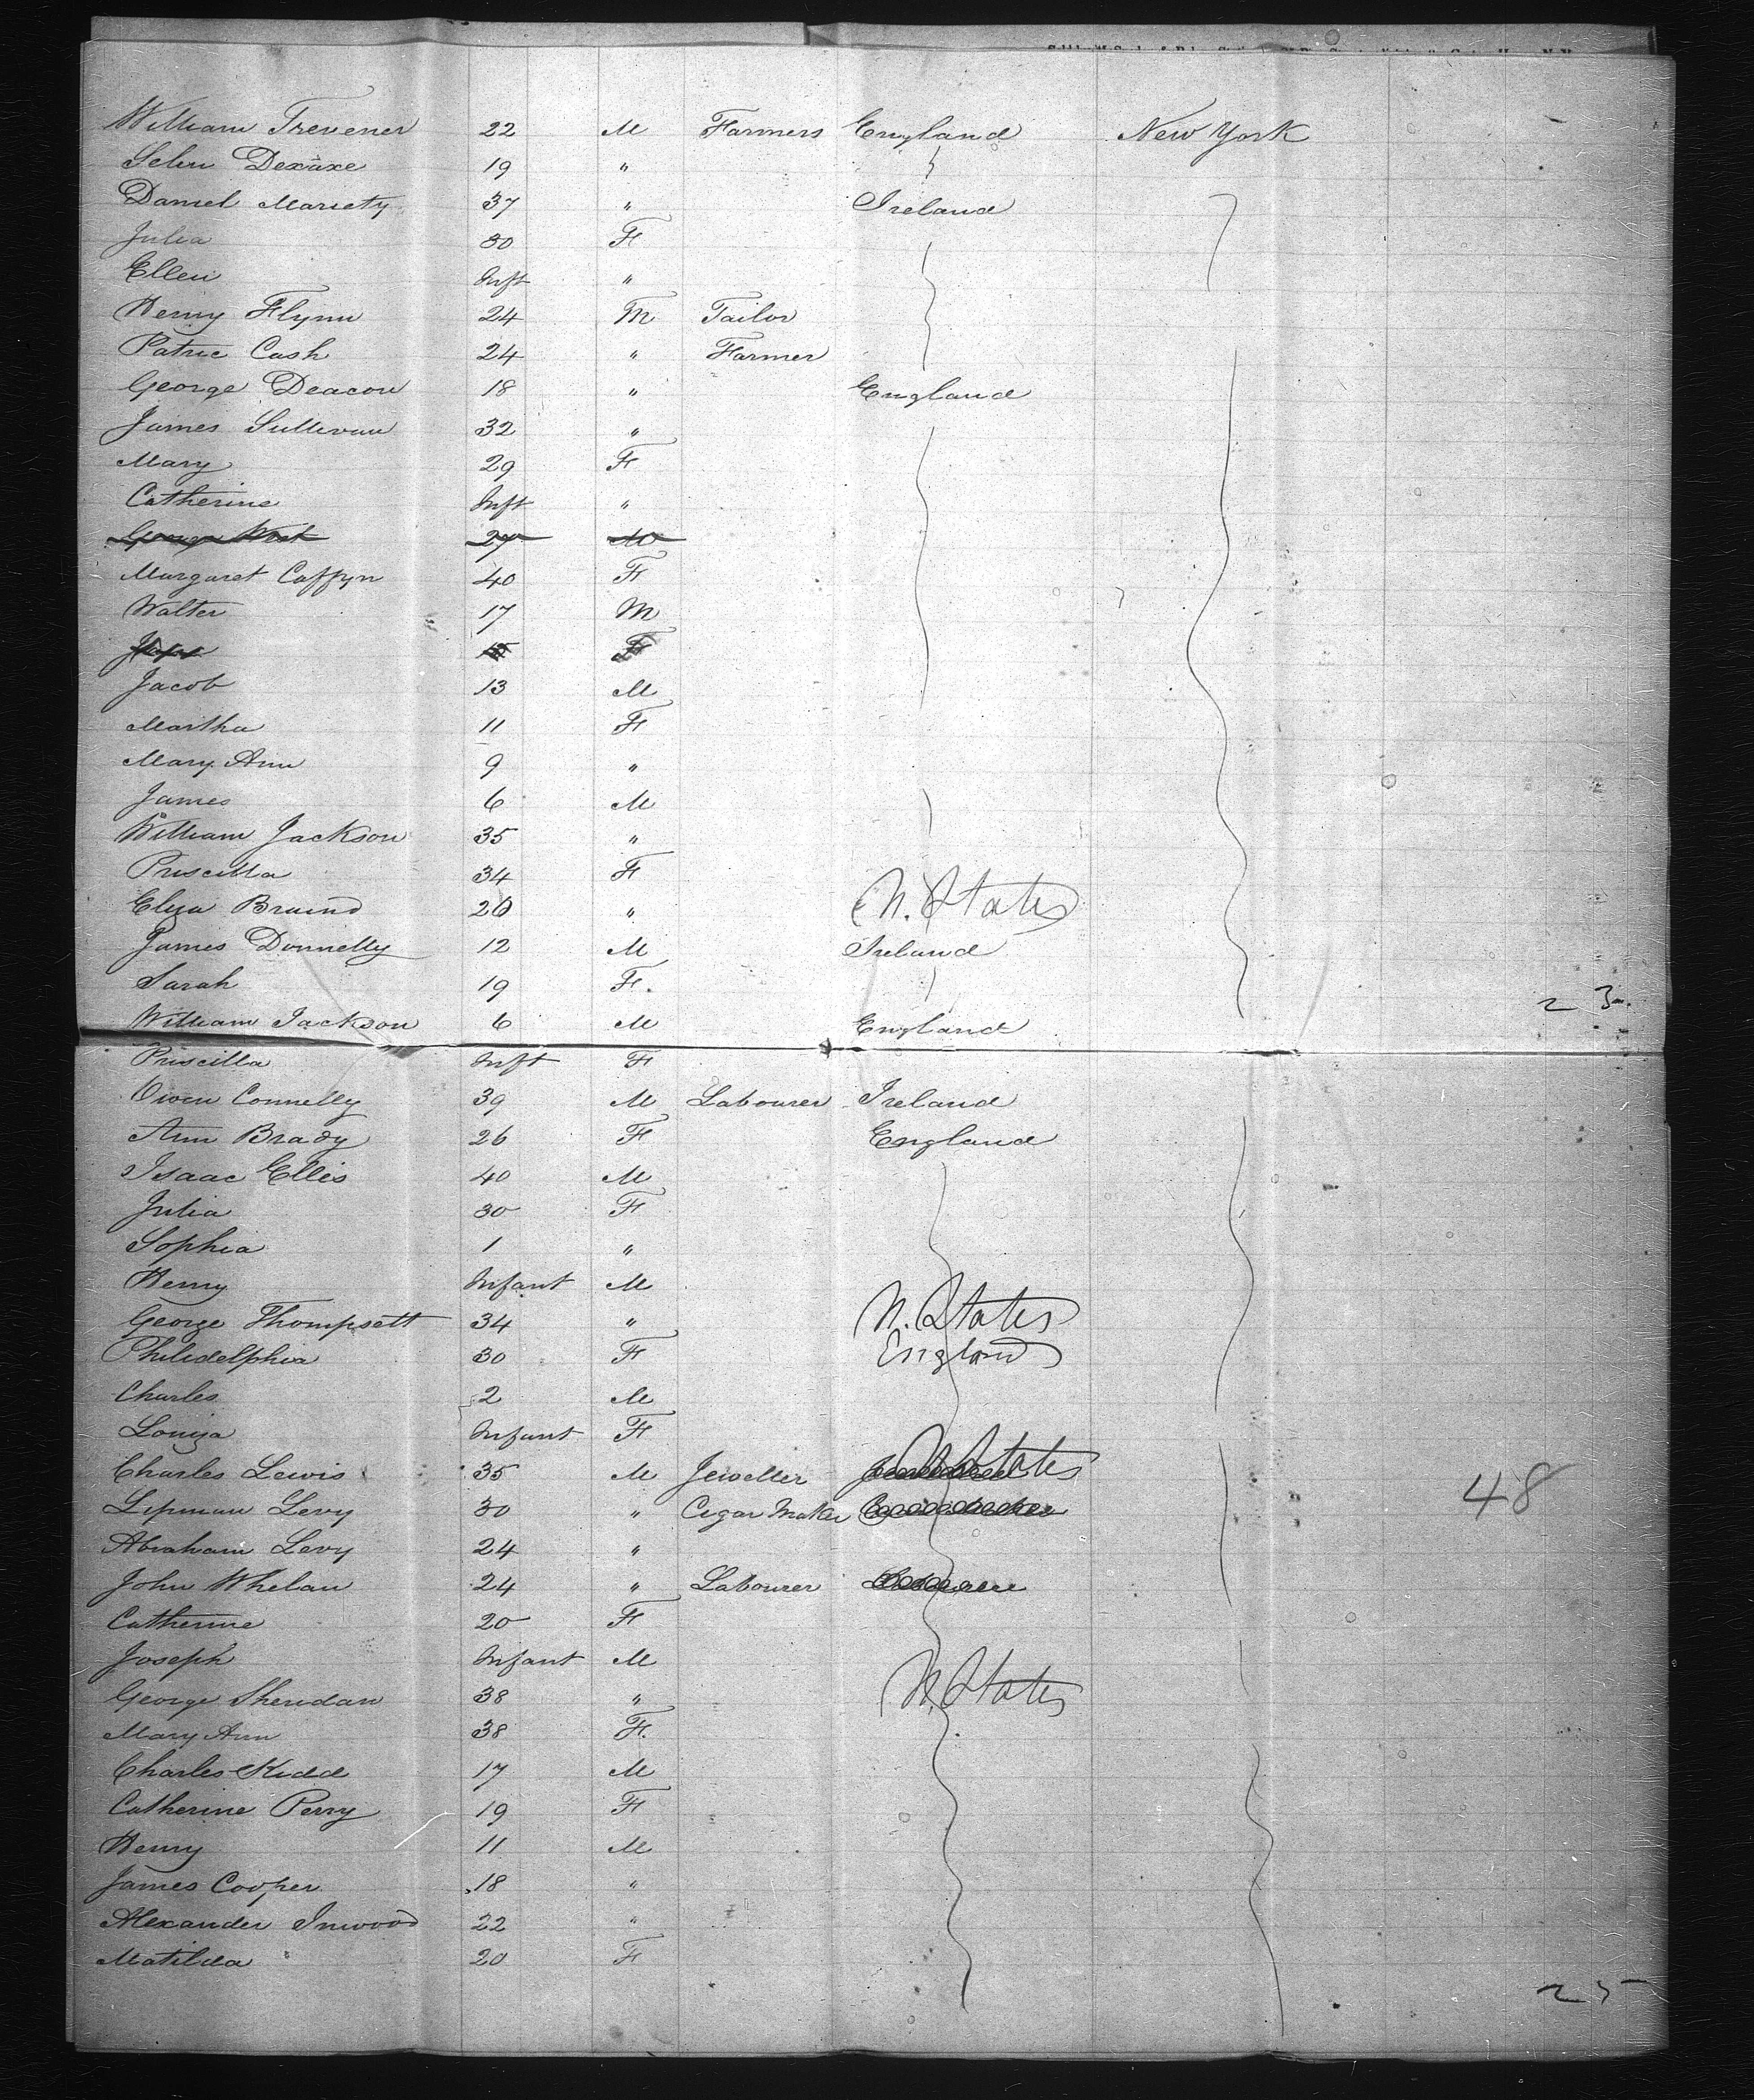 William Trevener 22 M Farmers England New York
Selen 19 "
Daniel Mariety 37 " Ireland
Julia 30 F
Ellen Inft "
Henry Flynn 24 M Tailor
Patric Cash 24 " Farmer
George Deacon 18 " England
James Sullivan 32 "
Mary 29 F
Catherine Inft "
George West 27 M
Margaret Caffyn 40 F
Walter 17 M
F
Jacob 13 M
Martha 11 F
Mary Ann 9 "
James 6 M
William Jackson 35 "
Priscilla 34 F
Eliza 20 " U. States
James Donnelly 12 M Ireland
Sarah 19 F.
23
William Jackson 6 M England
Priscilla Inft F
Owen Connelly 39 M Labourer Ireland
Ann Brady 26 F England
Isaac Ellis 40 M
Julia 30 F
Sophia 1 "
Henry Infant M
George Thompsett 34 " U. States
Philidelphia 30 F England
Charles 2 M
Louiza Infant F
Charles Lewis 35 M Jeweller U States
Lipman Levy 30 " Cigar Maker
48
Abraham Levy 24 "
John Whelan 24 " Labourer
Catherine 20 F
Joseph Infant M
George Sheridan 38 " U. States
Mary Ann 38 F.
Charles Kidd 17 M
Catherine Perry 19 F
Henry 11 M
James Cooper 18 "
Alexander Inwood 22 "
Matilda 20 F
25